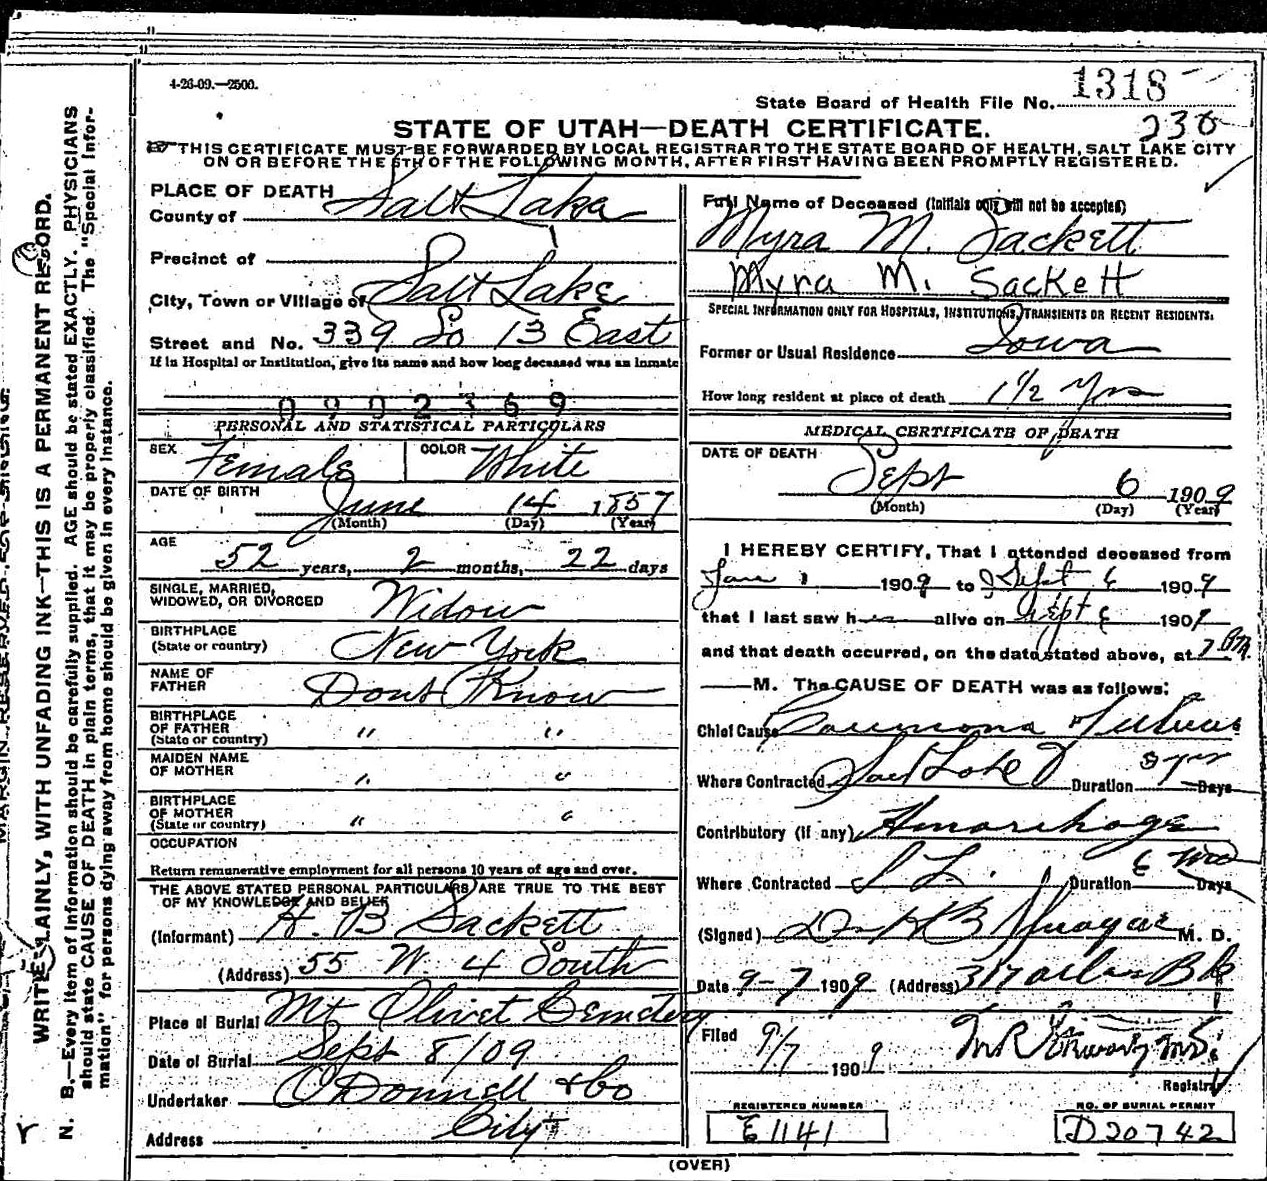 4-26-09.—2500.
State Board of Health File No. 1318
230
STATE OF UTAH—DEATH CERTIFICATE.
THIS CERTIFICATE MUST BE FORWARDED BY LOCAL REGISTRAR TO THE STATE BOARD OF HEALTH, SALT LAKE CITY
ON OR BEFORE THE 5TH OF THE FOLLOWING MONTH, AFTER FIRST HAVING BEEN PROMPTLY REGISTERED.
PLACE OF DEATH
County of Salt Lake
Precinct of
City, Town or Village of Salt Lake
Street and No. 339 So 13 East
If in Hospital or Institution, give its name and how long deceased was an inmate
0902369
PERSONAL AND STATISTICAL PARTICULARS
SEX Female COLOR White
DATE OF BIRTH June 14 1857
(Month) (Day) (Year)
AGE 52 years, 2 months, 22 days
SINGLE, MARRIED,
WIDOWED, OR DIVORCED Widow
BIRTHPLACE
(State or country) New York
NAME OF
FATHER Dont Know
BIRTHPLACE
OF FATHER
(State or country) " "
MAIDEN NAME
OF MOTHER " "
BIRTHPLACE
OF MOTHER
(State or country) " "
OCCUPATION
Return remunerative employment for all persons 10 years of age and over.
THE ABOVE STATED PERSONAL PARTICULARS ARE TRUE TO THE BEST
OF MY KNOWLEDGE AND BELIEF
(Informant) H. B Sackett
(Address) 55 W 4 South
Place of Burial Mt Olivet Cemetery
Date of Burial Sept 8/09
Undertaker O'Donnell & Co
Address City
Full Name of Deceased (Initials only will not be accepted)
Myra M. Sackett
Myra M. Sackett
SPECIAL INFORMATION ONLY FOR HOSPITALS, INSTITUTIONS, TRANSIENTS OR RECENT RESIDENTS.
Former or Usual Residence Iowa
How long resident at place of death 1½ Yrs
MEDICAL CERTIFICATE OF DEATH
DATE OF DEATH
Sept 6 1909
(Month) (Day) (Year)
I HEREBY CERTIFY, That I attended deceased from
Jan 1 1909 to Sept 6 1909
that I last saw h alive on Sept 6 1909
and that death occurred, on the date stated above, at 7 PM
M. The CAUSE OF DEATH was as follows:
Chief Cause
Where Contracted Salt Lake Duration yrs Days
Contributory (if any) Hmorrhage
Where Contracted S L. Duration 6 Days
(Signed) Dr M. D.
Date 9-7 1909 (Address) 317 Atlas Blk
Filed 9/7 1909
Registrar
REGISTERED NUMBER
E1141
NO. OF BURIAL PERMIT
D20742
(OVER)
MARGIN RESERVED FOR BINDING.
WRITE PLAINLY, WITH UNFADING INK—THIS IS A PERMANENT RECORD.
N. B.—Every item of information should be carefully supplied. AGE should be stated EXACTLY. PHYSICIANS
should state CAUSE OF DEATH in plain terms, that it may be properly classified. The "Special Infor-
mation" for persons dying away from home should be given in every instance.